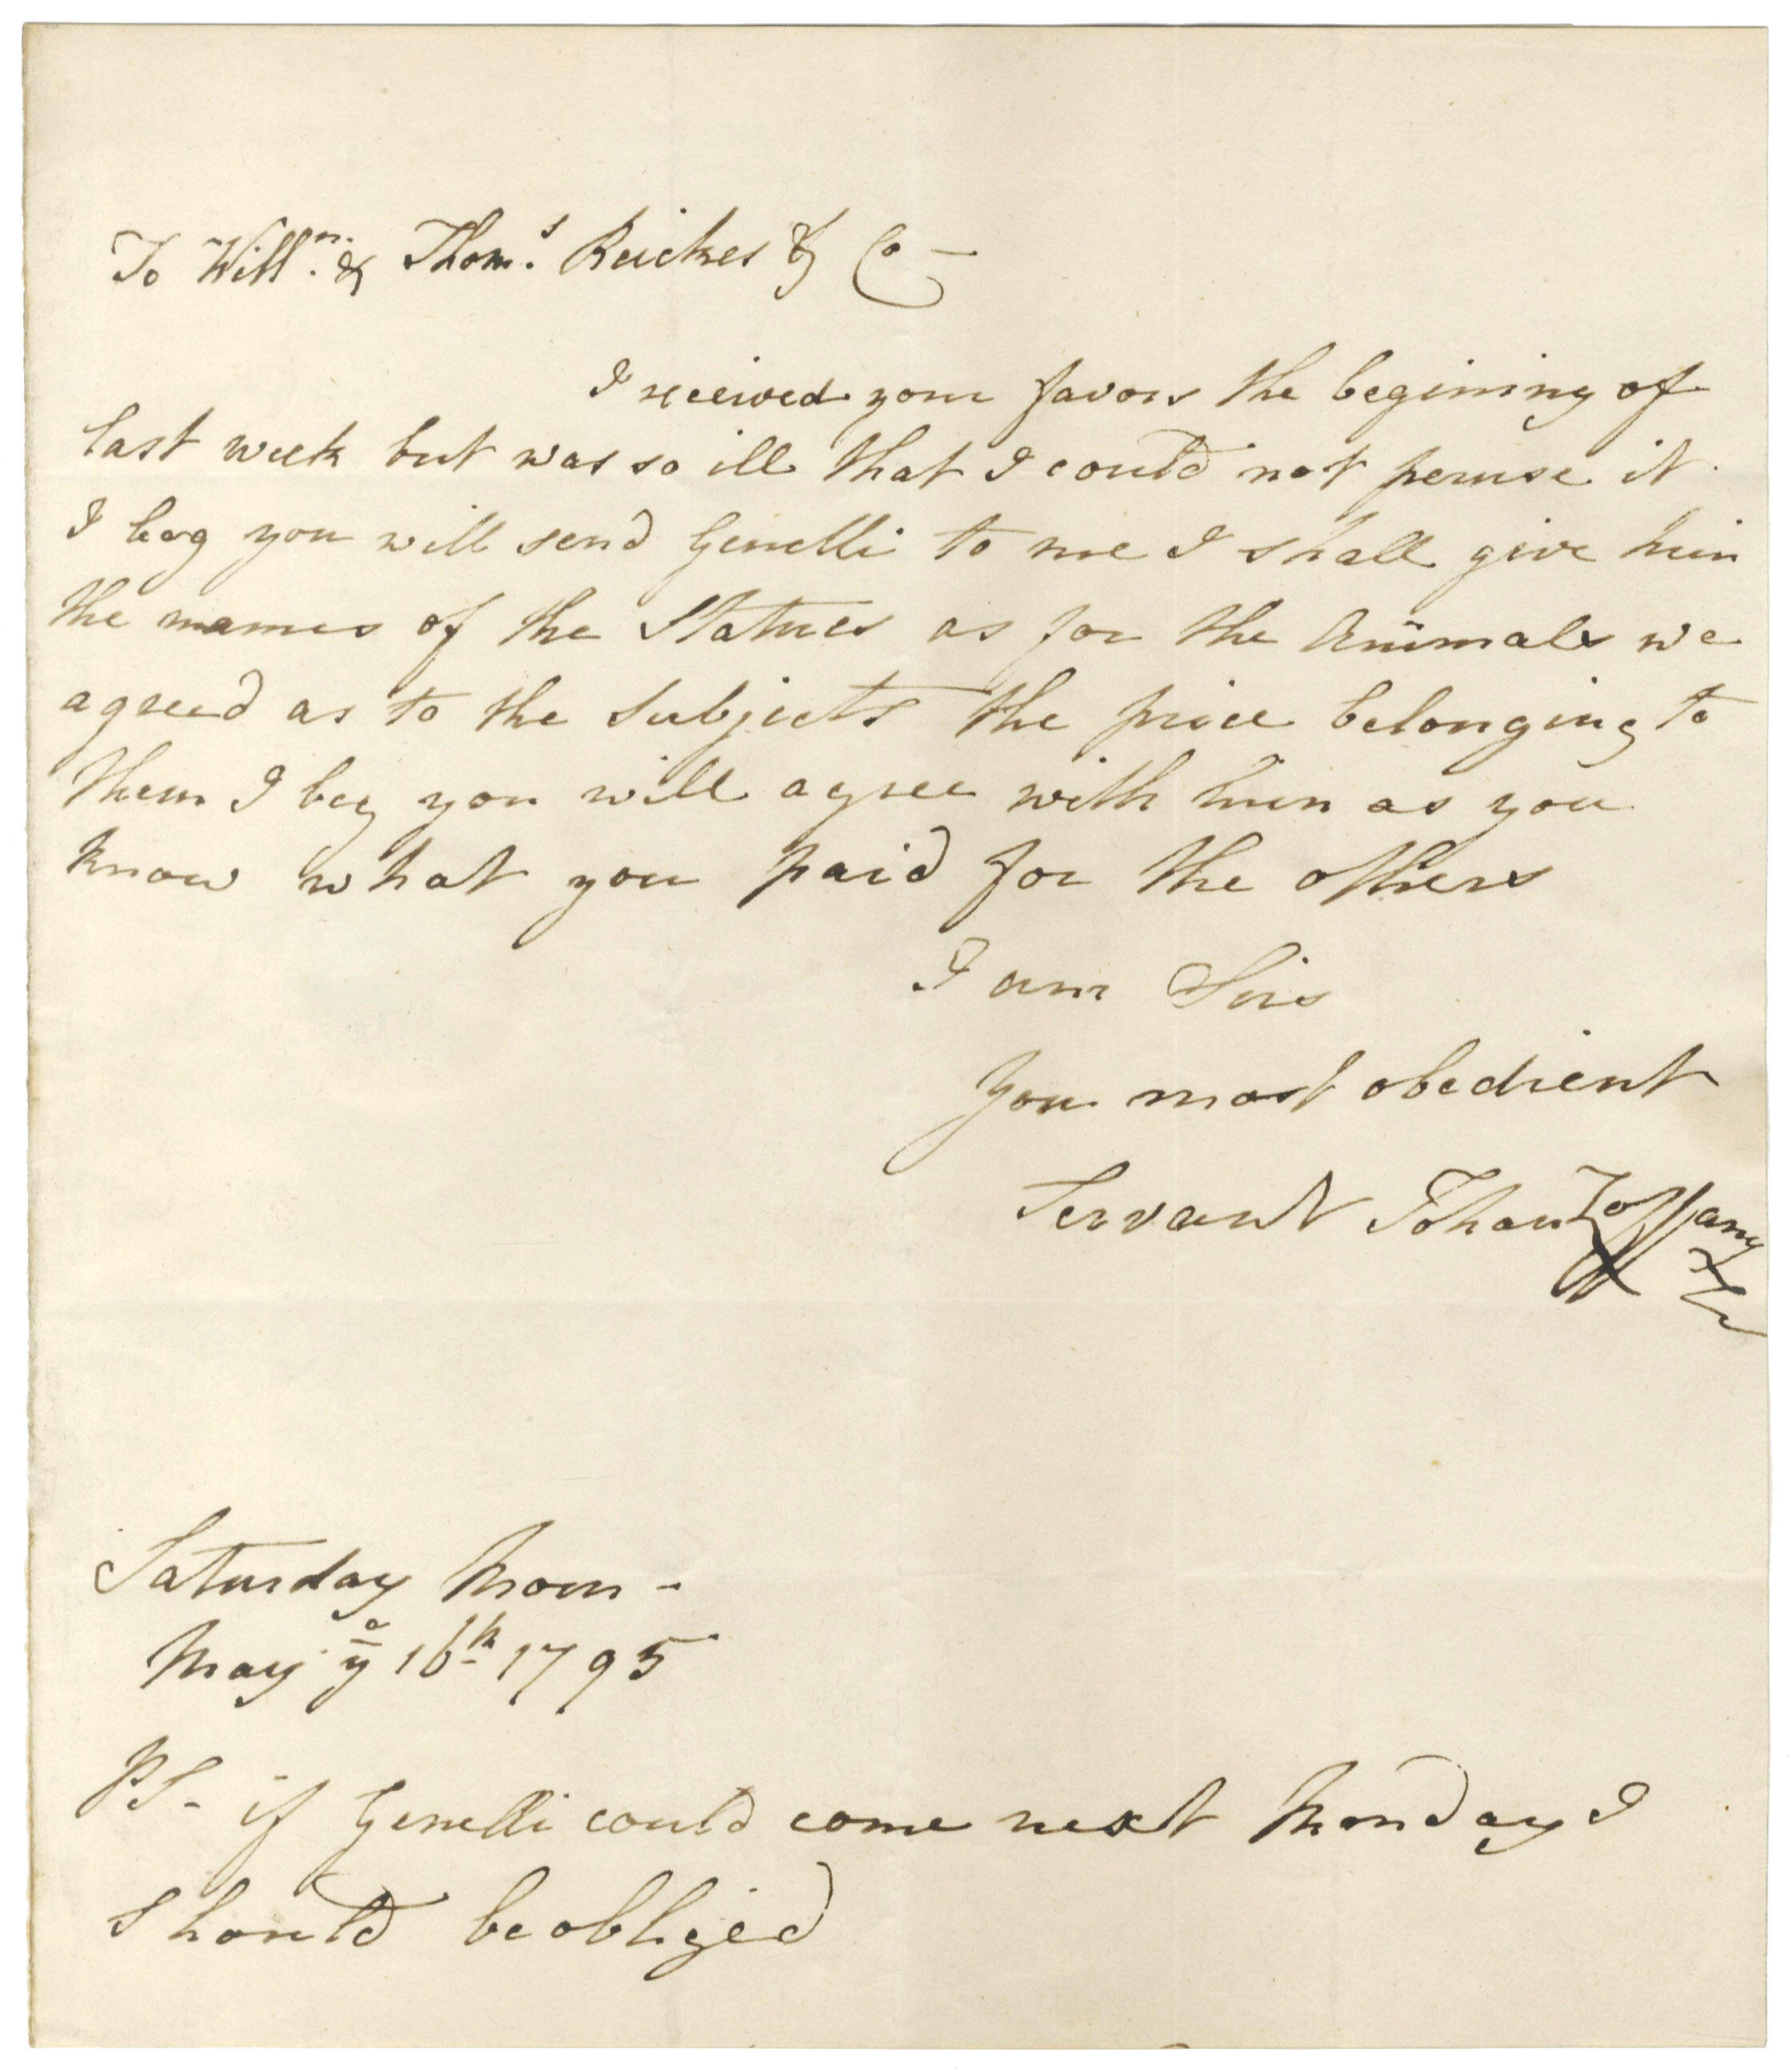 To Will.m & Thom.s Raickes & Co —
I received your favors the begining of
last week but was so ill that I could not peruse it.
I beg you will send Genelli to me I shall give him
the names of the Statues as for the Animals we
agreed as to the Subjects the price belonging to
them I beg you will agree with him as you
know what you paid for the others
I am Sirs
Your most obedient
Servant Johan Zoffany
Saturday Morn -
May ye 16th 1795
PS - if Genelli could come next Monday I
should be obliged